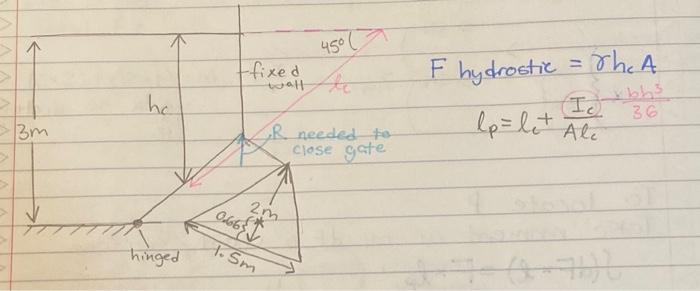 45°
fixed
wall
lc
hc
3m
R needed to
close gate
2m
0.665
1.5m
hinged
F hydrostic = γhcA
lp = lc + Ic / Alc
bh³
36